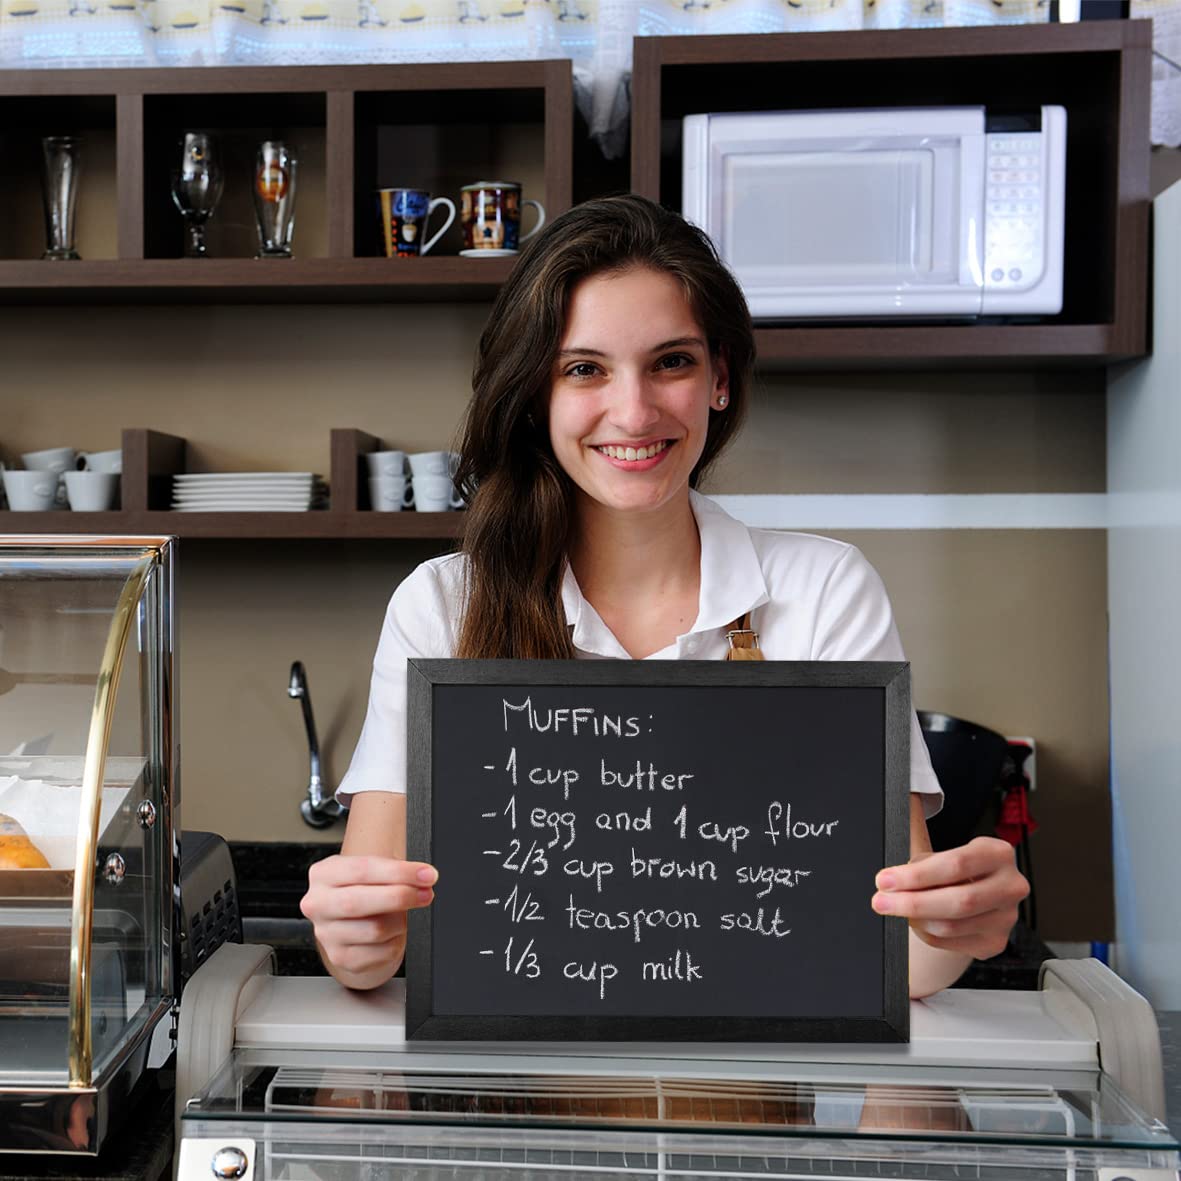 MUFFINS:
- 1 cup butter
- 1 egg and 1 cup flour
- 2/3 cup brown sugar
- 1/2 teaspoon salt
- 1/3 cup milk